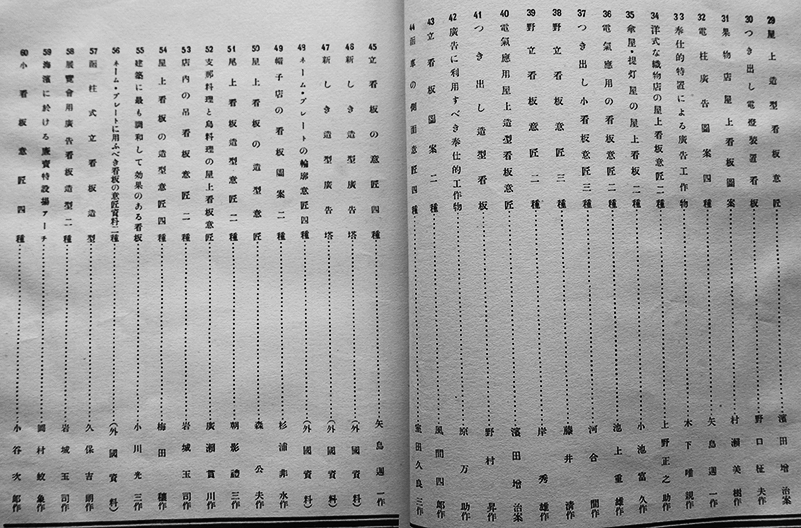 29 屋上造型看板意匠……濱田増治案
30 つき出し電燈装置看板……野口柾夫作
31 果物店屋上看板圖案……村瀬美樹作
32 電柱廣告圖案四種……矢島週一作
33 奉仕的特置による廣告工作物……木下唯親作
34 洋式な織物店の屋上看板意匠二種……上野正之助作
35 傘屋・提灯屋の屋上看板二種……小池富久作
36 電氣應用の看板意匠二種……池上重雄作
37 つき出し小看板意匠三種……河合間作
38 野立看板意匠三種……藤井清作
39 野立看板意匠二種……岸秀雄作
40 電氣應用屋上造型看板意匠……濱田増治案
41 つき出し造型看板……野村昇作
42 廣告に利用すべき奉仕的工作物……原万助作
43 立看板圖案二種……風間四郎作
44 車の側面意匠四種……田久良三作
45 立看板の意匠四種……矢島週一作
46 新しき造型廣告塔……(外國資料)
47 新しき造型廣告塔……(外國資料)
48 ネーム・プレートの輪廓意匠四種……(外國資料)
49 帽子店の看板圖案二種……杉浦非水作
50 屋上看板の造型意匠……森公夫作
51 屋上看板造型意匠二種……朝影禮三作
52 支那料理と鳥料理の屋上看板意匠……廣瀬貫川作
53 店内の吊看板意匠二種……岩城玉司作
54 屋上看板の造型意匠四種……梅田穰作
55 建築に最も調和して効果のある看板……小川光三作
56 ネーム・プレートに用ふべき看板の意匠資料二種……(外國資料)
57 函柱式立看板造型……久保吉朗作
58 展覽會用廣告看板造型二種……岩城玉司作
59 海濱に於ける廉賣特設場アーチ……岡村蚊象作
60 小看板意匠四種……小谷次郎作